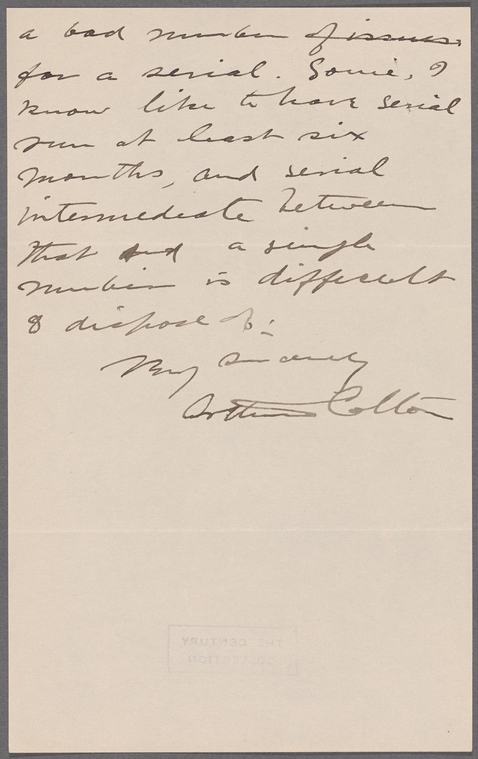 a bad number of issues.
for a serial. Some, I
know like to have serial
run at least six
months, and serial
intermediate between
that and a single
number is difficult
to dispose of:
Very sincerely
Arthur Colton
THE CENTURY
COLLECTION